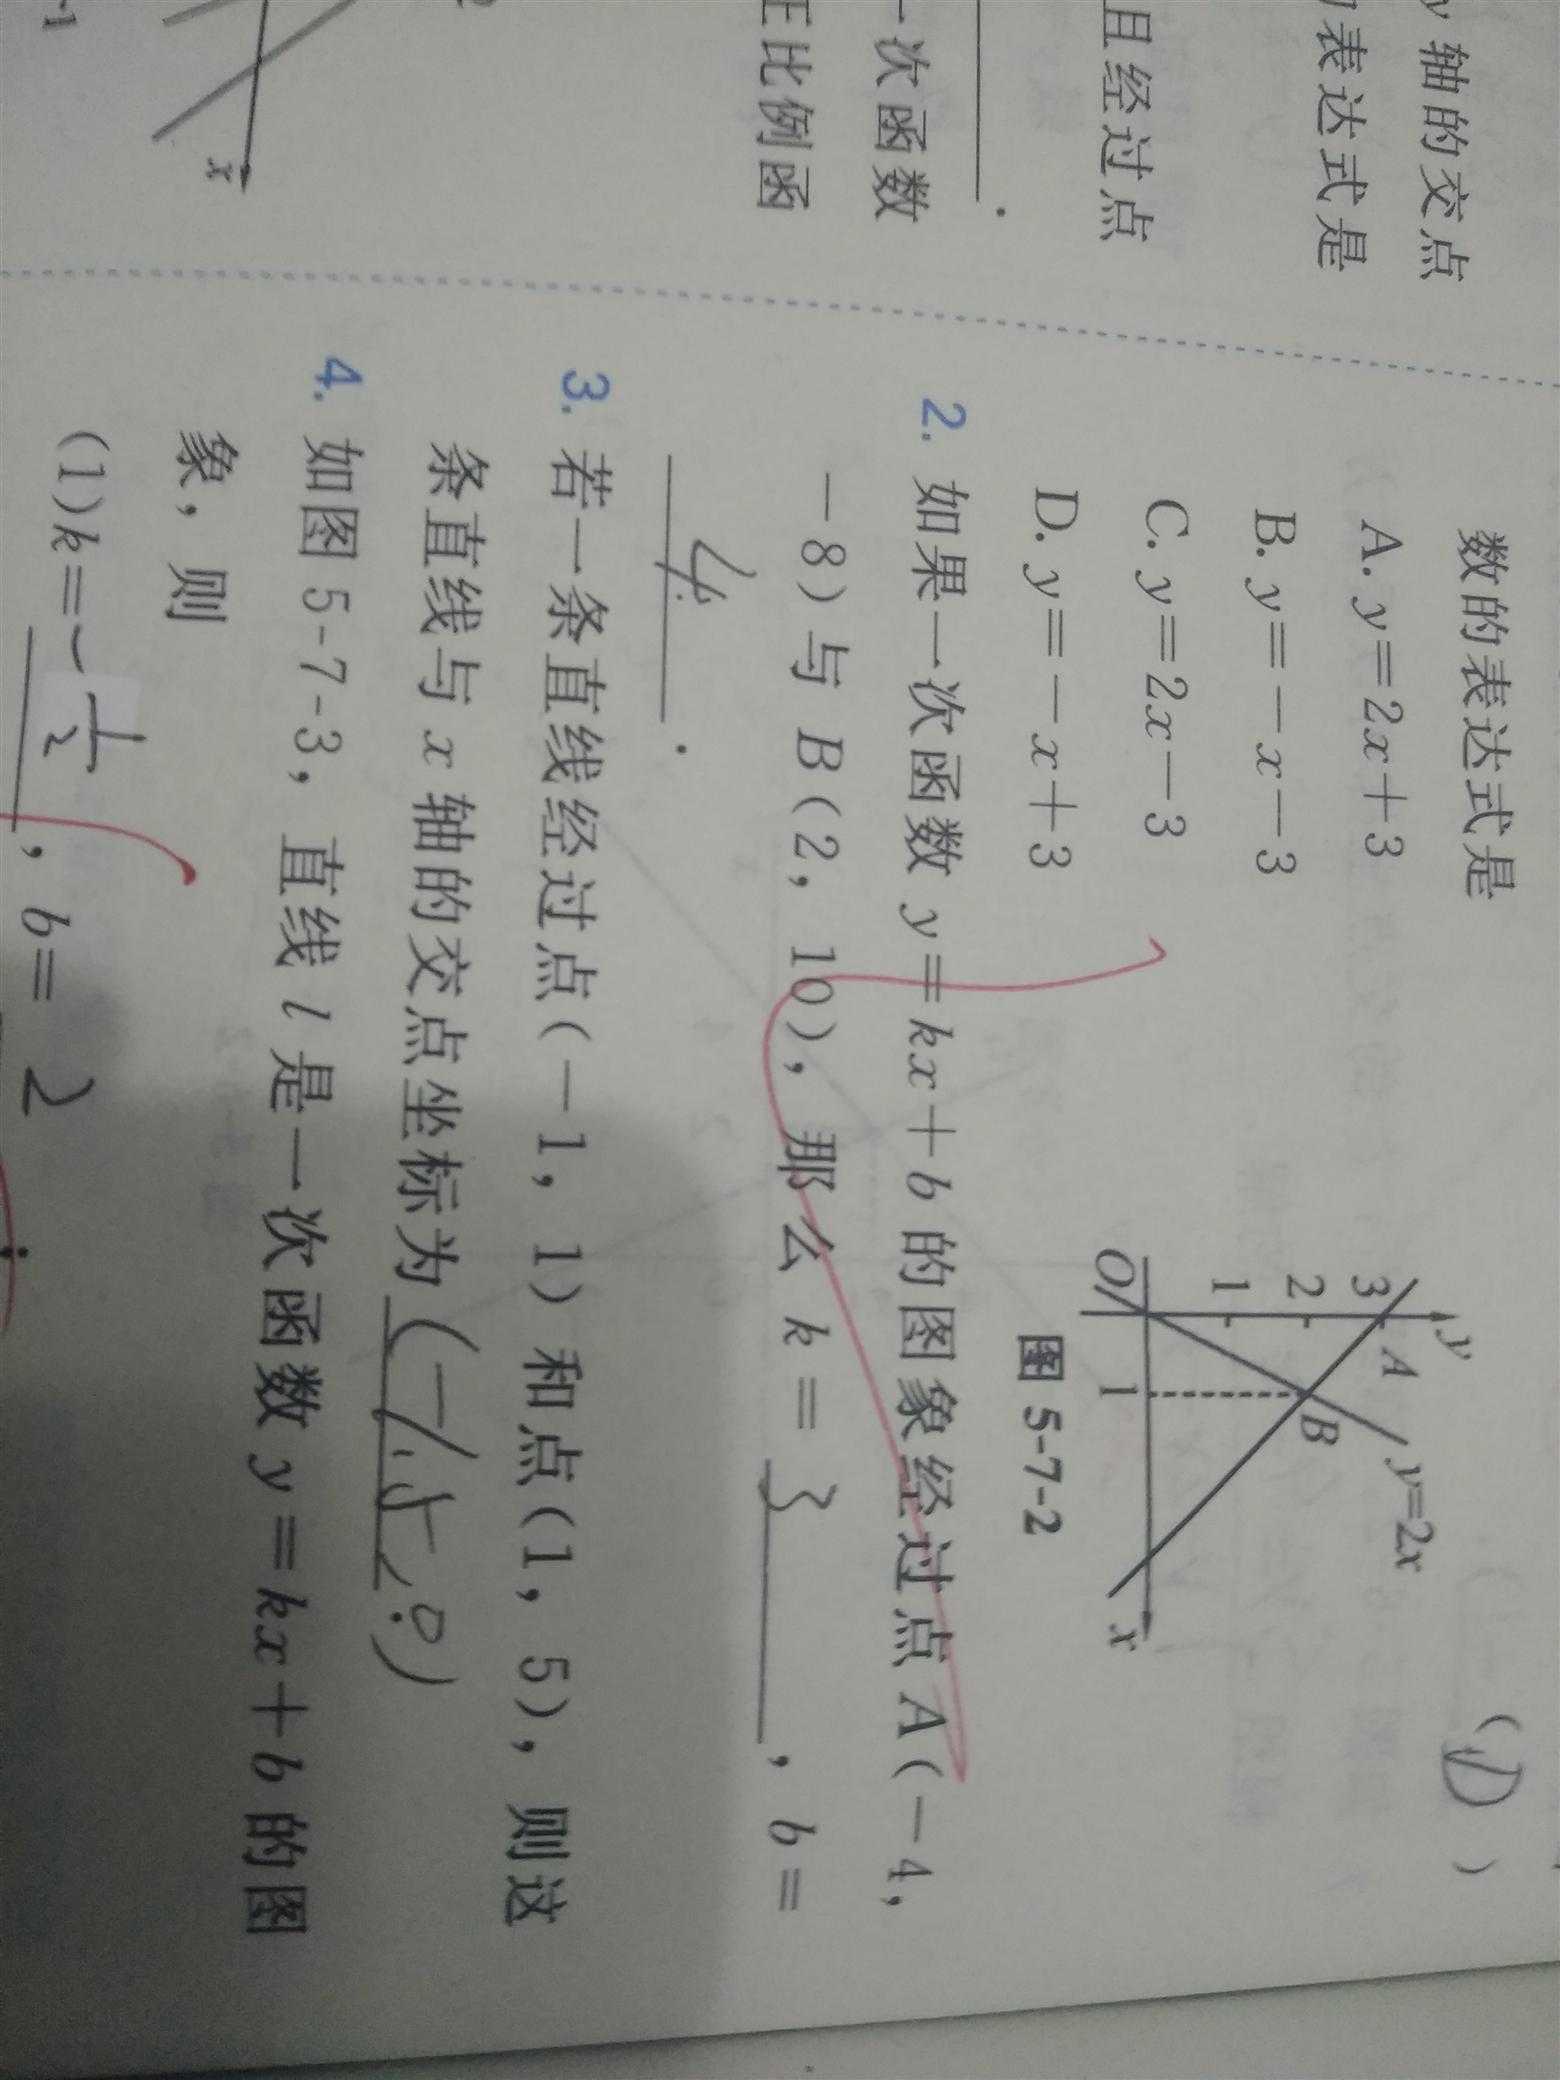 y 轴的交点
表达式是
且经过点
.
一次函数
正比例函
x
-1
数的表达式是
(D)
A. y=2x+3
B. y=-x-3
C. y=2x-3
D. y=-x+3
y
3
A
2
B
y=2x
1
O
1
x
图 5-7-2
2. 如果一次函数 y=kx+b 的图象经过点 A(-4,
-8)与 B(2, 10), 那么 k= 3 , b=
4 .
3. 若一条直线经过点(-1, 1)和点(1, 5), 则这
条直线与 x 轴的交点坐标为 (-1.5, 0)
4. 如图 5-7-3, 直线 l 是一次函数 y=kx+b 的图
象, 则
(1)k=-1/2, b= 2